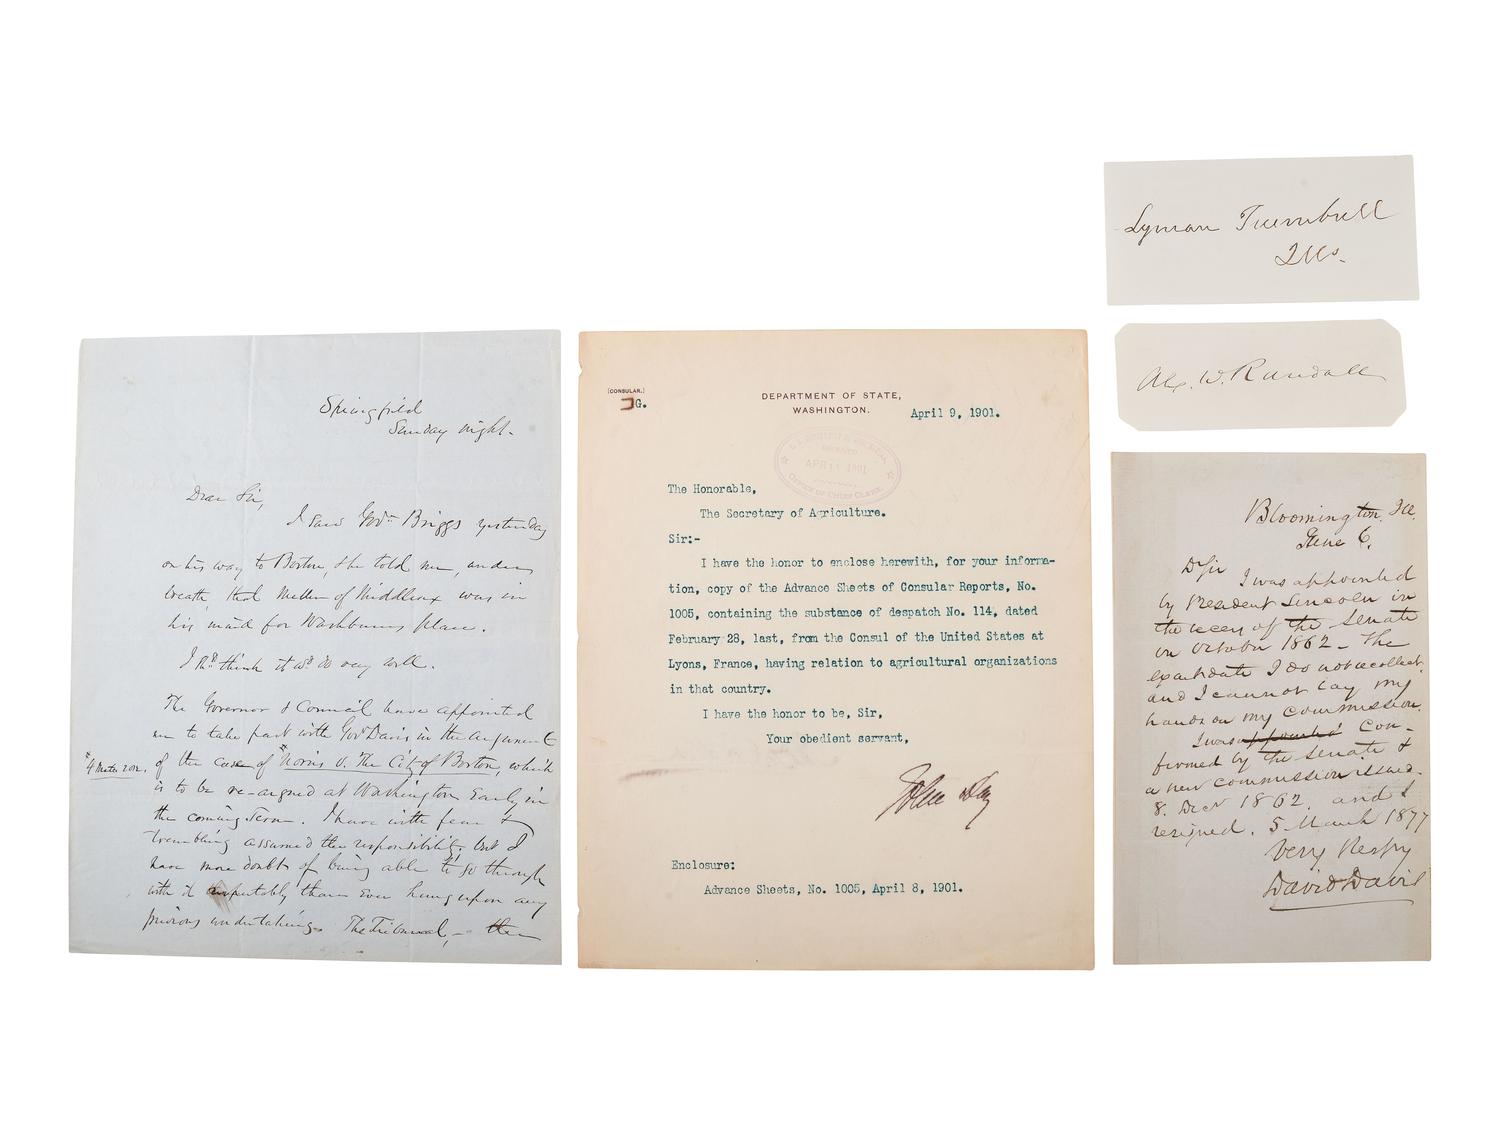 Springfield
Sunday night.
Dear Sir,
I saw Govr Briggs yesterday
on his way to Boston, & he told me, under
breath, that Mellen of Middlesex was in
his mind for Washburns place.
I shd think it wd do very well.
The Governor & Council have appointed
me to take part with Govr Davis in the argument
of the case of *Norris v. The City of Boston, which
*4 Metc 282.
is to be re-argued at Washington Early in
the coming Term. I have with fear &
trembling assumed the responsibility, but I
have more doubt of being able to go through
with it reputably than Ever hung upon any
previous undertaking. The Tribunal, – the
[CONSULAR.]
G.
DEPARTMENT OF STATE,
WASHINGTON.
April 9, 1901.
RECEIVED
APR 11 1901
OFFICE OF CHIEF CLERK.
The Honorable,
The Secretary of Agriculture.
Sir:-
I have the honor to enclose herewith, for your informa-
tion, copy of the Advance Sheets of Consular Reports, No.
1005, containing the substance of despatch No. 114, dated
February 28, last, from the Consul of the United States at
Lyons, France, having relation to agricultural organizations
in that country.
I have the honor to be, Sir,
Your obedient servant,
John Hay
Enclosure:
Advance Sheets, No. 1005, April 8, 1901.
Lyman Trumbull
Ills.
Alex. W. Randall
Bloomington, Ill.
June 6.
D Sir
I was appointed
by President Lincoln in
the recess of the Senate
in October 1862 – The
exact date I do not recollect
and I cannot lay my
hands on my commission.
I was appointed con-
firmed by the Senate &
a new commission issued
8. Decr 1862, and I
resigned. 5 March 1877
Very Respy
David Davis